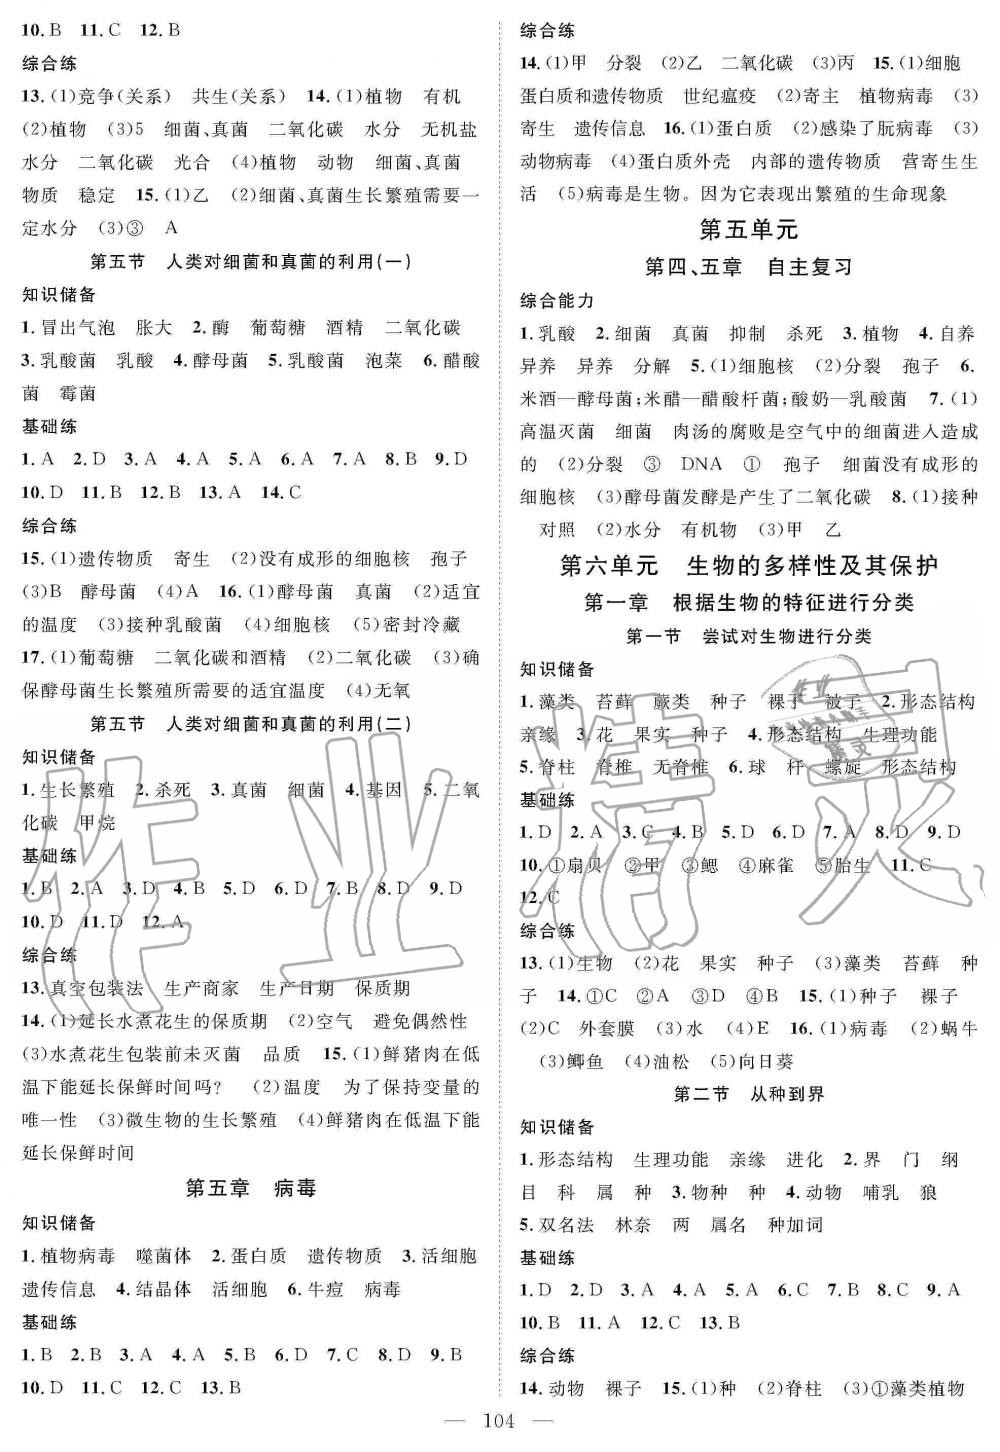 10. B　11. C　12. B
综合练
13. (1)竞争(关系)　共生(关系)　14. (1)植物　有机
(2)植物　(3)5　细菌、真菌　二氧化碳　水分　无机盐
水分　二氧化碳　光合　(4)植物　动物　细菌、真菌
物质　稳定　15. (1)乙　(2)细菌、真菌生长繁殖需要一
定水分　(3)③　A
第五节　人类对细菌和真菌的利用(一)
知识储备
1. 冒出气泡　胀大　2. 酶　葡萄糖　酒精　二氧化碳
3. 乳酸菌　乳酸　4. 酵母菌　5. 乳酸菌　泡菜　6. 醋酸
菌　霉菌
基础练
1. A　2. D　3. A　4. A　5. A　6. A　7. A　8. B　9. D
10. D　11. B　12. B　13. A　14. C
综合练
15. (1)遗传物质　寄生　(2)没有成形的细胞核　孢子
(3)B　酵母菌　(4)A　16. (1)酵母菌　真菌　(2)适宜
的温度　(3)接种乳酸菌　(4)细胞核　(5)密封冷藏
17. (1)葡萄糖　二氧化碳和酒精　(2)二氧化碳　(3)确
保酵母菌生长繁殖所需要的适宜温度　(4)无氧
第五节　人类对细菌和真菌的利用(二)
知识储备
1. 生长繁殖　2. 杀死　3. 真菌　细菌　4. 基因　5. 二氧
化碳　甲烷
基础练
1. B　2. A　3. D　4. B　5. D　6. D　7. B　8. D　9. D
10. D　11. D　12. A
综合练
13. 真空包装法　生产商家　生产日期　保质期
14. (1)延长水煮花生的保质期　(2)空气　避免偶然性
(3)水煮花生包装前未灭菌　品质　15. (1)鲜猪肉在低
温下能延长保鲜时间吗?　(2)温度　为了保持变量的
唯一性　(3)微生物的生长繁殖　(4)鲜猪肉在低温下能
延长保鲜时间
第五章　病毒
知识储备
1. 植物病毒　噬菌体　2. 蛋白质　遗传物质　3. 活细胞
遗传信息　4. 结晶体　活细胞　6. 牛痘　病毒
基础练
1. B　2. B　3. A　4. A　5. B　6. D　7. C　8. D　9. B
10. D　11. C　12. C　13. B
综合练
14. (1)甲　分裂　(2)乙　二氧化碳　(3)丙　15. (1)细胞
蛋白质和遗传物质　世纪瘟疫　(2)寄主　植物病毒　(3)
寄生　遗传信息　16. (1)蛋白质　(2)感染了朊病毒　(3)
动物病毒　(4)蛋白质外壳　内部的遗传物质　营寄生生
活　(5)病毒是生物。因为它表现出繁殖的生命现象
第五单元
第四、五章　自主复习
综合能力
1. 乳酸　2. 细菌　真菌　抑制　杀死　3. 植物　4. 自养
异养　异养　分解　5. (1)细胞核　(2)分裂　孢子　6.
米酒—酵母菌;米醋—醋酸杆菌;酸奶—乳酸菌　7. (1)
高温灭菌　细菌　肉汤的腐败是空气中的细菌进入造成
的　(2)分裂　③　DNA　①　孢子　细菌没有成形的
细胞核　(3)酵母菌发酵是产生了二氧化碳　8. (1)接种
对照　(2)水分　有机物　(3)甲　乙
第六单元　生物的多样性及其保护
第一章　根据生物的特征进行分类
第一节　尝试对生物进行分类
知识储备
1. 藻类　苔藓　蕨类　种子　裸子　被子　2. 形态结构
亲缘　3. 花　果实　种子　4. 形态结构　生理功能
5. 脊柱　脊椎　无脊椎　6. 球　杆　螺旋　形态结构
基础练
1. D　2. A　3. C　4. B　5. D　6. D　7. A　8. D　9. D
10. ①扇贝　②甲　③鳃　④麻雀　⑤胎生　11. C
12. C
综合练
13. (1)生物　(2)花　果实　种子　(3)藻类　苔藓　种
子　14. ①C　②A　③D　④B　15. (1)种子　裸子
(2)C　外套膜　(3)水　(4)E　16. (1)病毒　(2)蜗牛
(3)鲫鱼　(4)油松　(5)向日葵
第二节　从种到界
知识储备
1. 形态结构　生理功能　亲缘　进化　2. 界　门　纲
目　科　属　种　3. 物种　种　4. 动物　哺乳　狼
5. 双名法　林奈　两　属名　种加词
基础练
1. D　2. D　3. A　4. A　5. A　6. C　7. B　8. C　9. A
10. B　11. A　12. C　13. B
综合练
14. 动物　裸子　15. (1)种　(2)脊柱　(3)①藻类植物
— 104 —
作业精灵